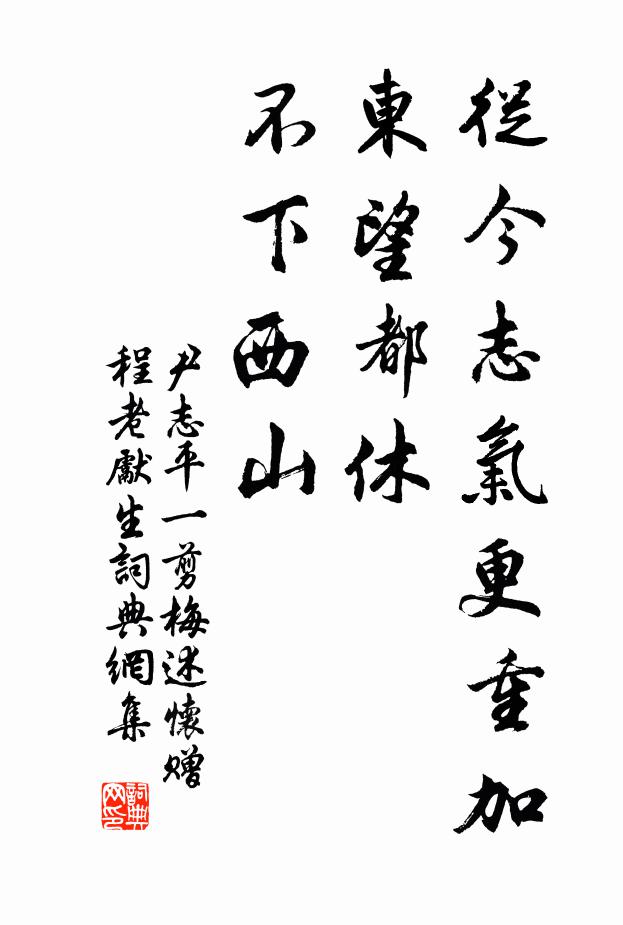 從今志氣更重加
東望都休
不下西山
尹志平一剪梅述懷贈
程老獻生詞典網集
詞典
网印